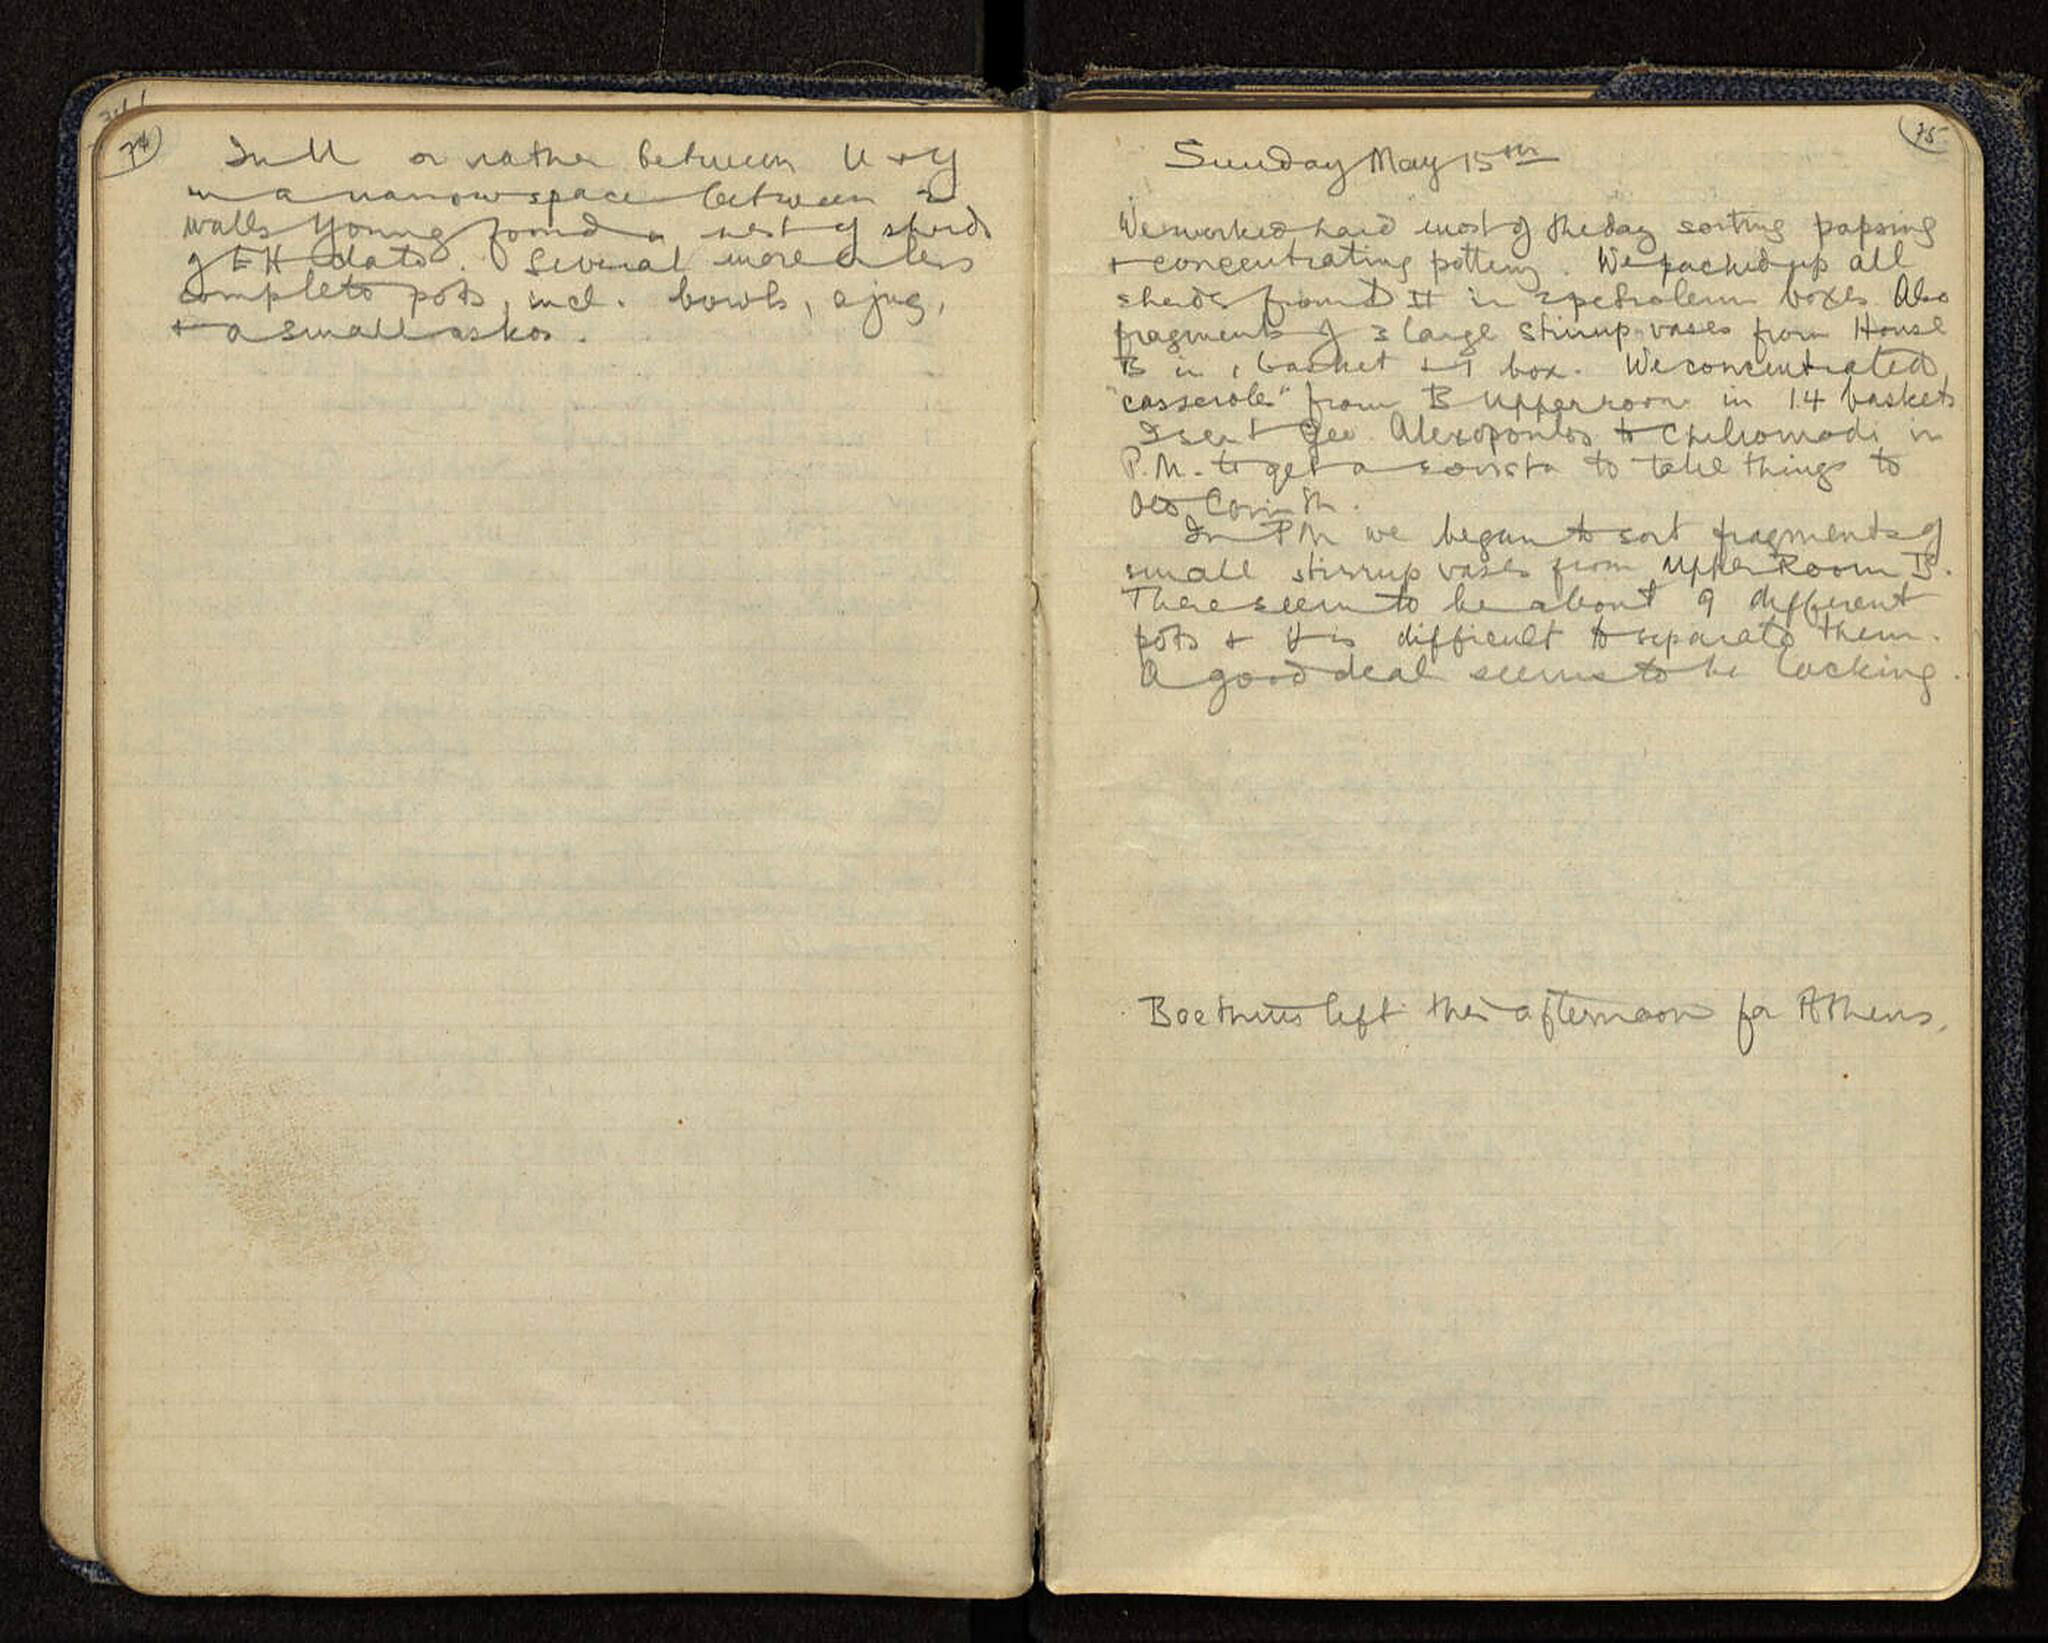 74
In U or rather between U + Y
in a narrow space between 2
walls Young found a nest of sherds
of EH date. Several more or less
complete pots, incl. bowls, a jug,
+ a small askos.
75
Sunday May 15th
We worked hard most of the day sorting papsing
+ concentrating pottery. We packed up all
sherds from D II in 2 petroleum boxes. Also
fragments of 3 large stirrup-vases from House
B in 1 basket + 1 box. We concentrated
"casseroles" from B Upper room in 14 baskets
I sent Geo. Alexopoulos to Chiliomodi in
P.M. to get a sousta to take things to
Old Corinth.
In PM we began to sort fragments of
small stirrup vases from Upper Room B.
There seem to be about 9 different
pots + it is difficult to separate them.
A good deal seems to be lacking.
Boethius left this afternoon for Athens.